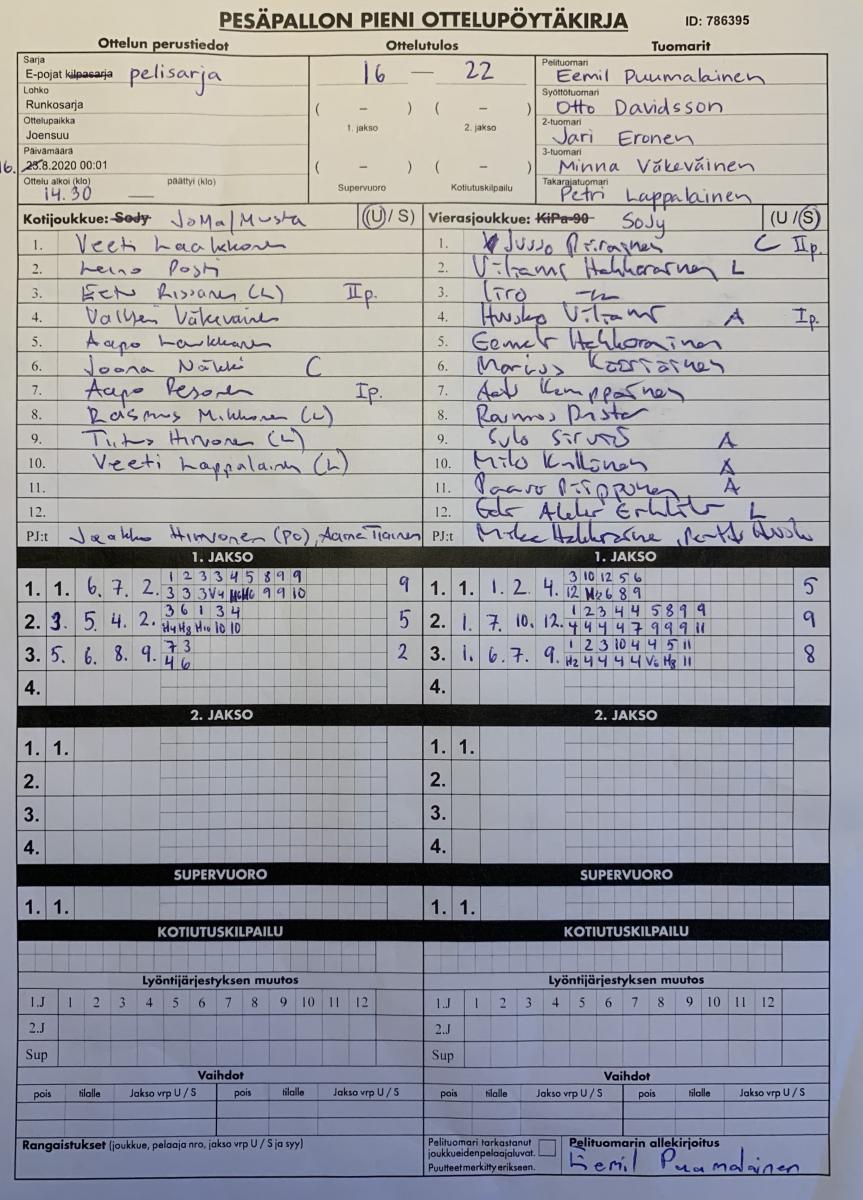 PESÄPALLON PIENI OTTELUPÖYTÄKIRJA ID: 786395
Ottelun perustiedot Ottelutulos Tuomarit
Sarja
E-pojat kilpasarja pelisarja
16 — 22
Pelituomari
Eemil Puumalainen
Lohko
Runkosarja
Syöttötuomari
Otto Davidsson
Ottelupaikka
Joensuu
( – ) ( – )
1. jakso 2. jakso
2-tuomari
Jari Eronen
Päivämäärä
16. 23.8.2020 00:01
3-tuomari
Minna Väkeväinen
Ottelu alkoi (klo) päättyi (klo)
14.30 —
( – ) ( – )
Supervuoro Kotiutuskilpailu
Takarajatuomari
Petri Lappalainen
Kotijoukkue: Sody JoMa/Musta (U / S) Vierasjoukkue: KiPa-90 SoJy (U / S)
1. Veeti Laakkonen 1. Jusso Piirainen C IIp.
2. Leino Posti 2. L
3. Eetu Rissanen (L) IIp. 3. Iiro
4. Valtteri Väkeväinen 4. Huusko Viliami A Ip.
5. Aapo 5. Eemeli
6. Joona Näkki C 6. Marius
7. Aapo Pesonen Ip. 7. Kemppainen
8. Rasmus Mikkonen (L) 8. Rasmus
9. Tiitus Hirvonen (L) 9. Sulo A
10. Veeti Lappalainen (L) 10. Milo Kallinen A
11. 11. Paavo Piipponen A
12. 12. L
PJ:t Jaakko Hirvonen (PO), Tiainen PJ:t Mika
1. JAKSO 1. JAKSO
1. 1. 6. 7. 2. 1 2 3 3 4 5 8 9 9 9 1. 1. 1. 2. 4. 3 10 12 5 6 5
3 3 3 V4 9 9 10 12 H2 6 8 9
2. 3. 5. 4. 2. 3 6 1 3 4 5 2. 1. 7. 10. 12. 1 2 3 4 4 5 8 9 9 9
H4 H8 H10 10 10 4 4 4 4 7 9 9 9 11
3. 5. 6. 8. 9. 7 3 2 3. 1. 6. 7. 9. 1 2 3 10 4 4 5 11 8
4 6 H2 4 4 4 4 V6 H8 11
4. 4.
2. JAKSO 2. JAKSO
1. 1. 1. 1.
2. 2.
3. 3.
4. 4.
SUPERVUORO SUPERVUORO
1. 1. 1. 1.
KOTIUTUSKILPAILU KOTIUTUSKILPAILU
Lyöntijärjestyksen muutos Lyöntijärjestyksen muutos
1.J 1 2 3 4 5 6 7 8 9 10 11 12 1.J 1 2 3 4 5 6 7 8 9 10 11 12
2.J 2.J
Sup Sup
Vaihdot Vaihdot
pois tilalle Jakso vrp U / S pois tilalle Jakso vrp U / S pois tilalle Jakso vrp U / S pois tilalle Jakso vrp U / S
Rangaistukset (joukkue, pelaaja nro, jakso vrp U / S ja syy)
Pelituomari tarkastanut
joukkueiden pelaajaluvat.
Puutteet merkitty erikseen.
Pelituomarin allekirjoitus
Eemil Puumalainen